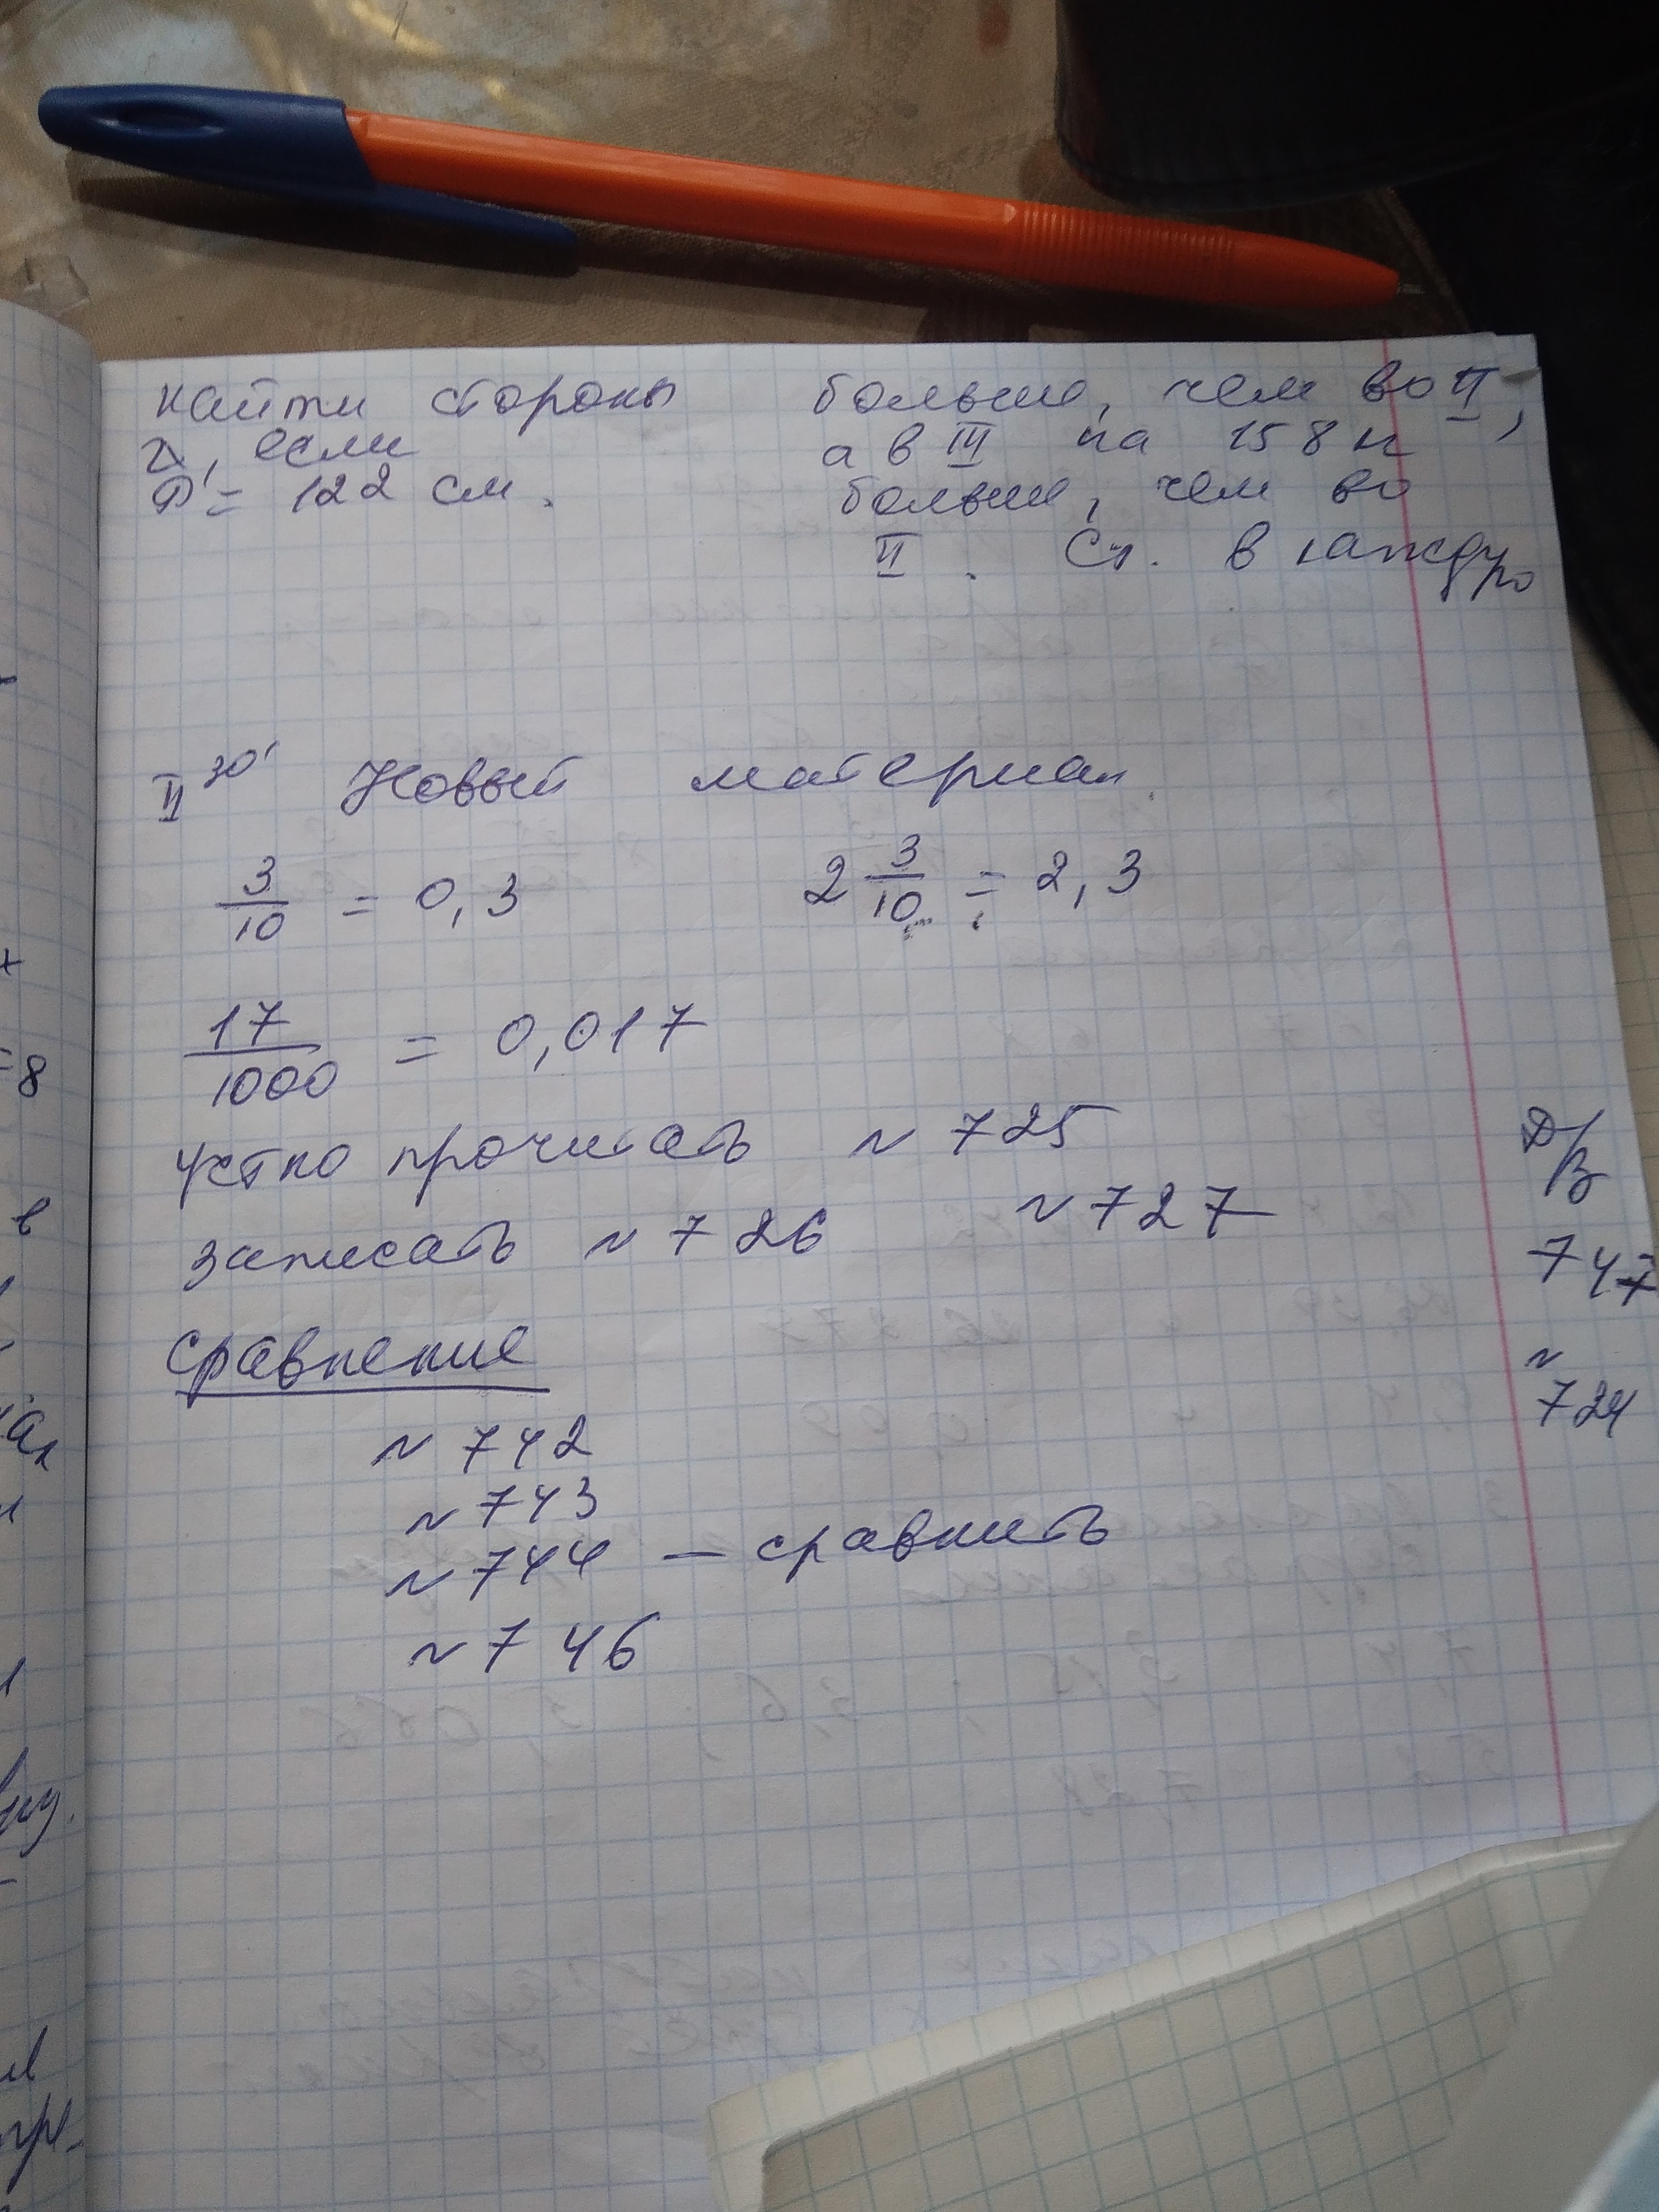 найти стороны
Δ, если
P = 122 см.
больше, чем во II,
а в III на 158 к
больше, чем во
II. Ск. в кажду
II 30' Новый материал.
3/10 = 0,3
2 3/10 = 2,3
17/1000 = 0,017
устно прочитать № 725
записать № 726 № 727
Сравнение
№ 742
№ 743
№ 744 — сравнить
№ 746
Д/З
747
№
724
=8
в